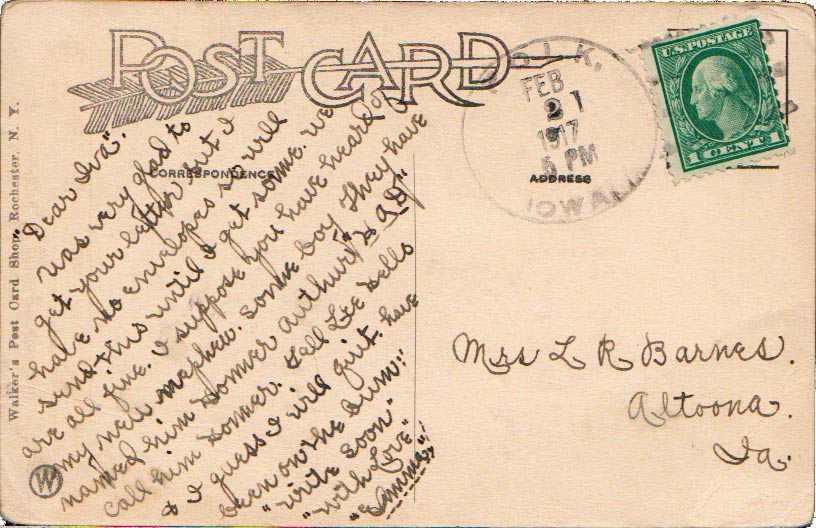 POST CARD
CORRESPONDENCE
ADDRESS
Walker's Post Card Shop, Rochester, N. Y.
W
POLK,
FEB
21
1917
5 PM
IOWA
U.S. POSTAGE
1 CENT 1
Dear Iva".
Was very glad to
get your letter but I
have no envelopes so will
send this until I get some. We
are all fine. I suppose you have heard of
my new nephew. Some boy They have
named him Donner Arthur " AD"
call him Donner. Tell Lee Dells
& I guess I will quit. have
been on the bum!"
"Write soon"
"With Love"
"Emma"
Mrs L R Barnes.
Altoona.
Ia.